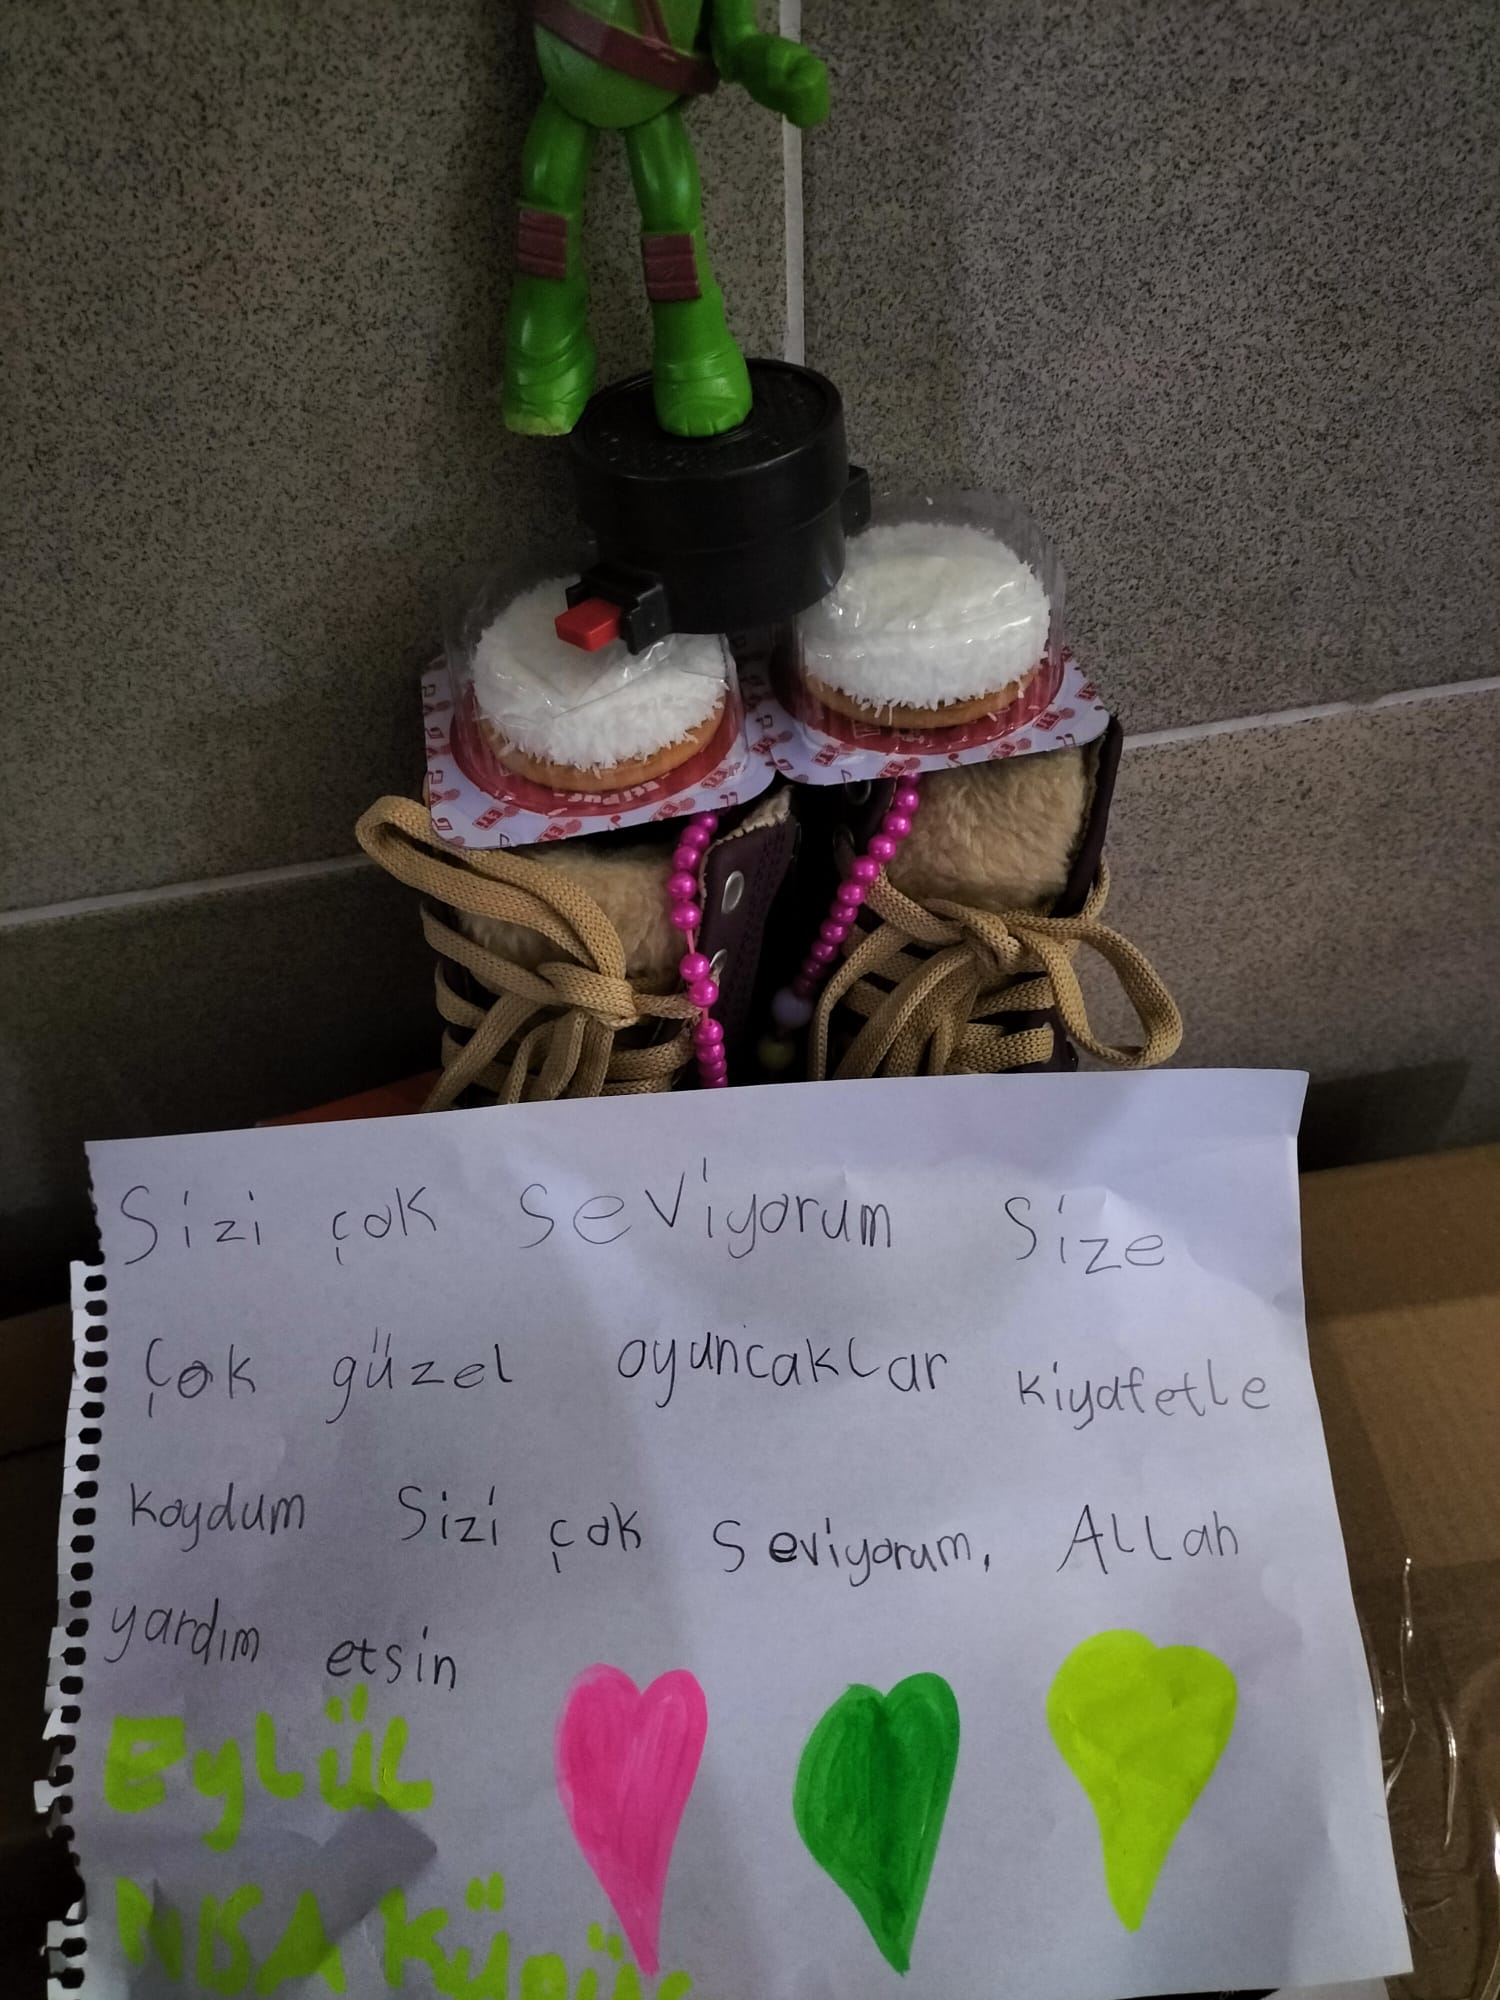 Eti puf
Sizi çok seviyorum Size
çok güzel oyuncaklar kiyafetle
koydum Sizi çok seviyorum, Allah
yardım etsin
Eylül